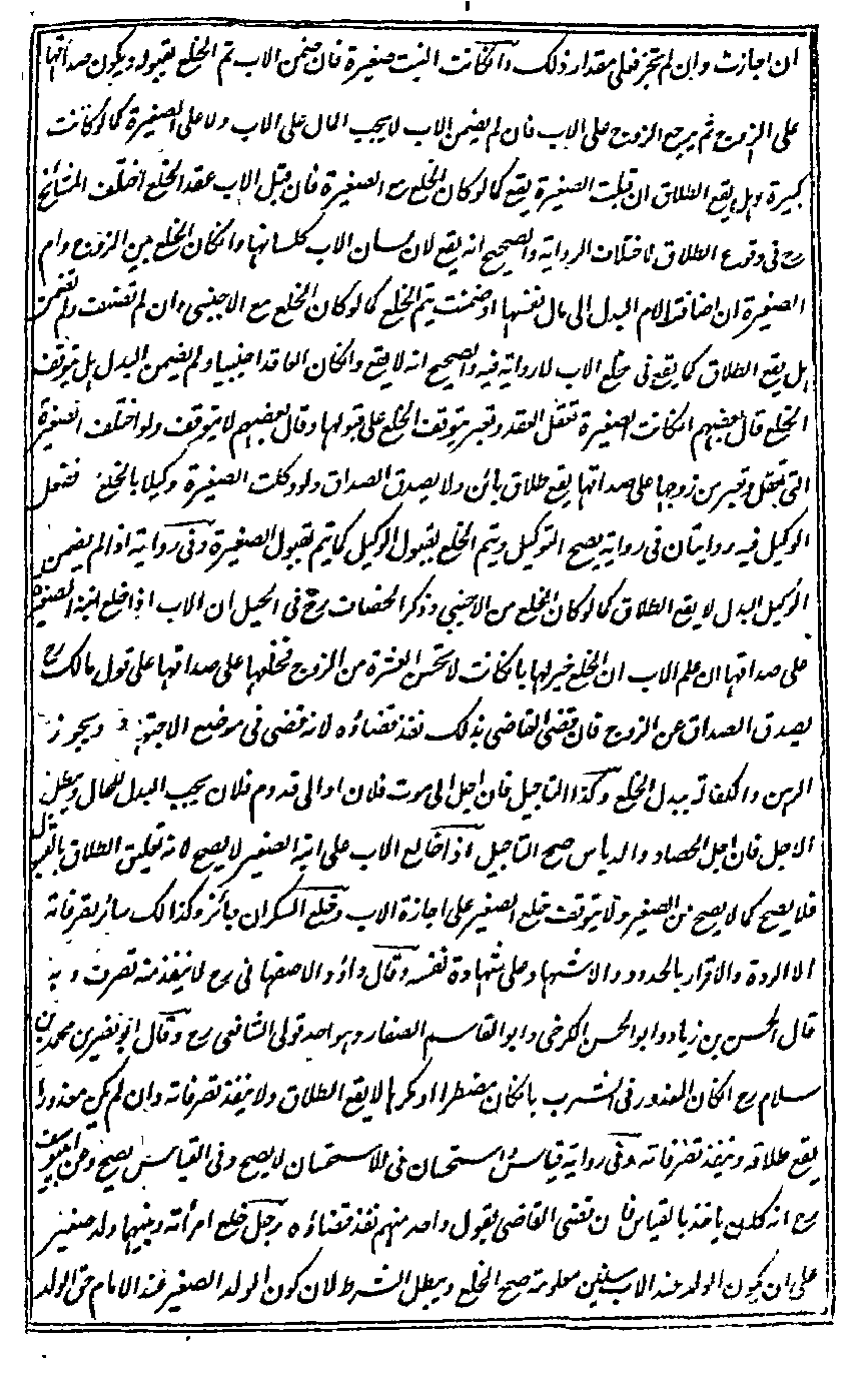 ان اجازت وان لم تجز فعلى مقدار ذلك وانكانت البنت صغيرة فان ضمن الاب تم الخلع بقبوله ويكون صداقها
على الزوج ثم يرجع الزوج على الاب فان لم يضمن الاب لا يجب المال على الاب ولا على الصغيرة كما لو كانت
كبيرة وهل يقع الطلاق ان قبلت الصغيرة يقع كما لو كان الخلع مع الصغيرة فان قبل الاب عقد الخلع اختلف المشائخ
رح فى وقوع الطلاق لاختلاف الرواية والصحيح انه يقع لان لسان الاب كلسانها وانكان الخلع بين الزوج وام
الصغيرة ان اضافت الام البدل الى مال نفسها او ضمنت يتم الخلع كما لو كان الخلع مع الاجنبى وان لم تضف ولم تضمن
هل يقع الطلاق كما يقع فى خلع الاب لا رواية فيه والصحيح انه لا يقع وانكان العاقد اجنبيا ولم يضمن البدل هل يتوقف
الخلع قال بعضهم انكانت الصغيرة تعقل العقد وتعبر يتوقف الخلع على قبولها وقال بعضهم لا يتوقف ولو اختلعت الصغيرة
التى تعقل وتعبر من زوجها على صداقها يقع طلاق بائن ولا يصدق الصداق ولو وكلت الصغيرة وكيلا بالخلع ففعل
الوكيل فيه روايتان فى رواية يصح التوكيل ويتم الخلع بقبول الوكيل كما يتم بقبول الصغيرة وفى رواية اذا لم يضمن
الوكيل البدل لا يقع الطلاق كما لو كان الخلع من الاجنبى وذكر الخصاف رح فى الحيل ان الاب اذا خلع ابنته الصغيرة
على صداقها ان علم الاب ان الخلع خير لها بان كانت لا تحسن العشرة من الزوج فخلعها على صداقها على قول مالك رح
يصدق الصداق عن الزوج فان قضى القاضى بذلك نفذ قضاؤه لانه قضى فى موضع الاجتهاد ويجوز
الرهن والكفالة ببدل الخلع وكذا التاجيل فان اجل الى موت فلان او الى قدوم فلان يجب البدل للحال ويبطل
الاجل فان اجل الحصاد والدياس صح التاجيل اذا خالع الاب على ابنه الصغير لا يصح لانه تعليق الطلاق بالقبول
فلا يصح كما لا يصح من الصغير ولا يتوقف خلع الصغير على اجازة الاب وخلع السكران جائز وكذا لك سائر تصرفاته
الا الردة والاقرار بالحدود والاشهاد على شهادة نفسه وقال داؤد الاصفهانى رح لا ينفذ منه تصرف وبه
قال الحسن بن زياد وابو الحسن الكرخى وابو القاسم الصفار وهو احد قولى الشافعى رح وقال ابو نصر بن محمد بن
سلام رح انكان المعذور فى الشرب بان كان مضطرا او مكرها لا يقع الطلاق ولا ينفذ تصرفاته وان لم يكن معذورا
يقع طلاقه وينفذ تصرفاته وفى رواية قياس واستحسان فى الاستحسان لا يصح وفى القياس يصح وعن ابى يوسف
رح انه كان ياخذ بالقياس فان قضى القاضى بقول واحد منهم نفذ قضاؤه رجل خلع امرأته وبينهما ولد صغير
على ان يكون الولد عند الاب سنين معلومة صح الخلع ويبطل الشرط لان كون الولد الصغير عند الام حق الولد